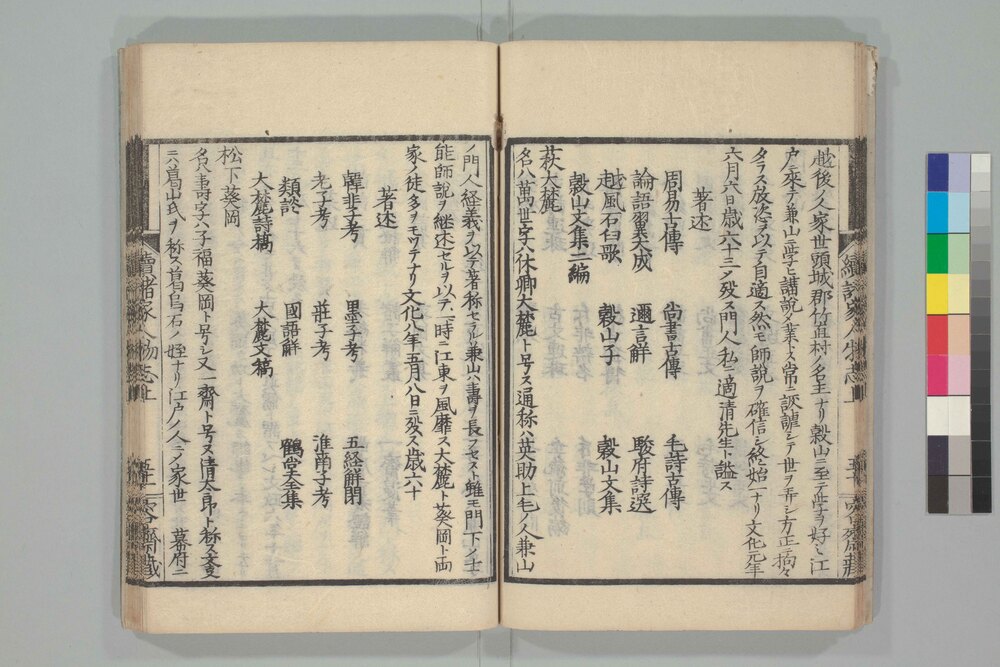 越後ノ人家世頸城郡竹直村ノ名主ナリ穀山ニ至テ学ヲ好ミ江
戸ニ來テ兼山ニ学ヒ講説ヲ業トス常ニ詼謔シテ世ヲ弄シ方正ニ拘々
タラス放恣ヲ以テ自適ス然モ師説ヲ確信シ終始一ナリ文化元年
六月六日歳六十三ニメ歿ス門人私ニ適清先生ト謚ス
著述
周易古傳 尚書古傳 毛詩古傳
論語翼大成 邇言解 駿府詩選
越風石臼歌 穀山子 穀山文集
穀山文集二編
萩大麓
名ハ萬世字ハ休卿大麓ト号ス通称ハ英助上毛ノ人兼山
ノ門人経義ヲ以テ著称セラル兼山ハ壽ヲ長フセスト雖モ門下ノ士
能師説ヲ継述セルヲ以テ一時ニ江東ヲ風靡ス大麓ト葵岡ト両
家ノ徒多キヲモツテナリ文化八年五月八日ニ歿ス歳六十
著述
韓非子考 墨子考 五経解閉
老子考 莊子考 淮南子考
類談 國語解 鶴堂全集
大麓詩稿 大麓文稿
松下葵岡
名ハ壽字ハ子福葵岡ト号シ又一齋ト号ス清太郎ト称ス本姓
ハ葛山氏ヲ称ス葛烏石ノ姪ナリ江戸ノ人ニメ家世〻幕府ニ
續諸家人物志上